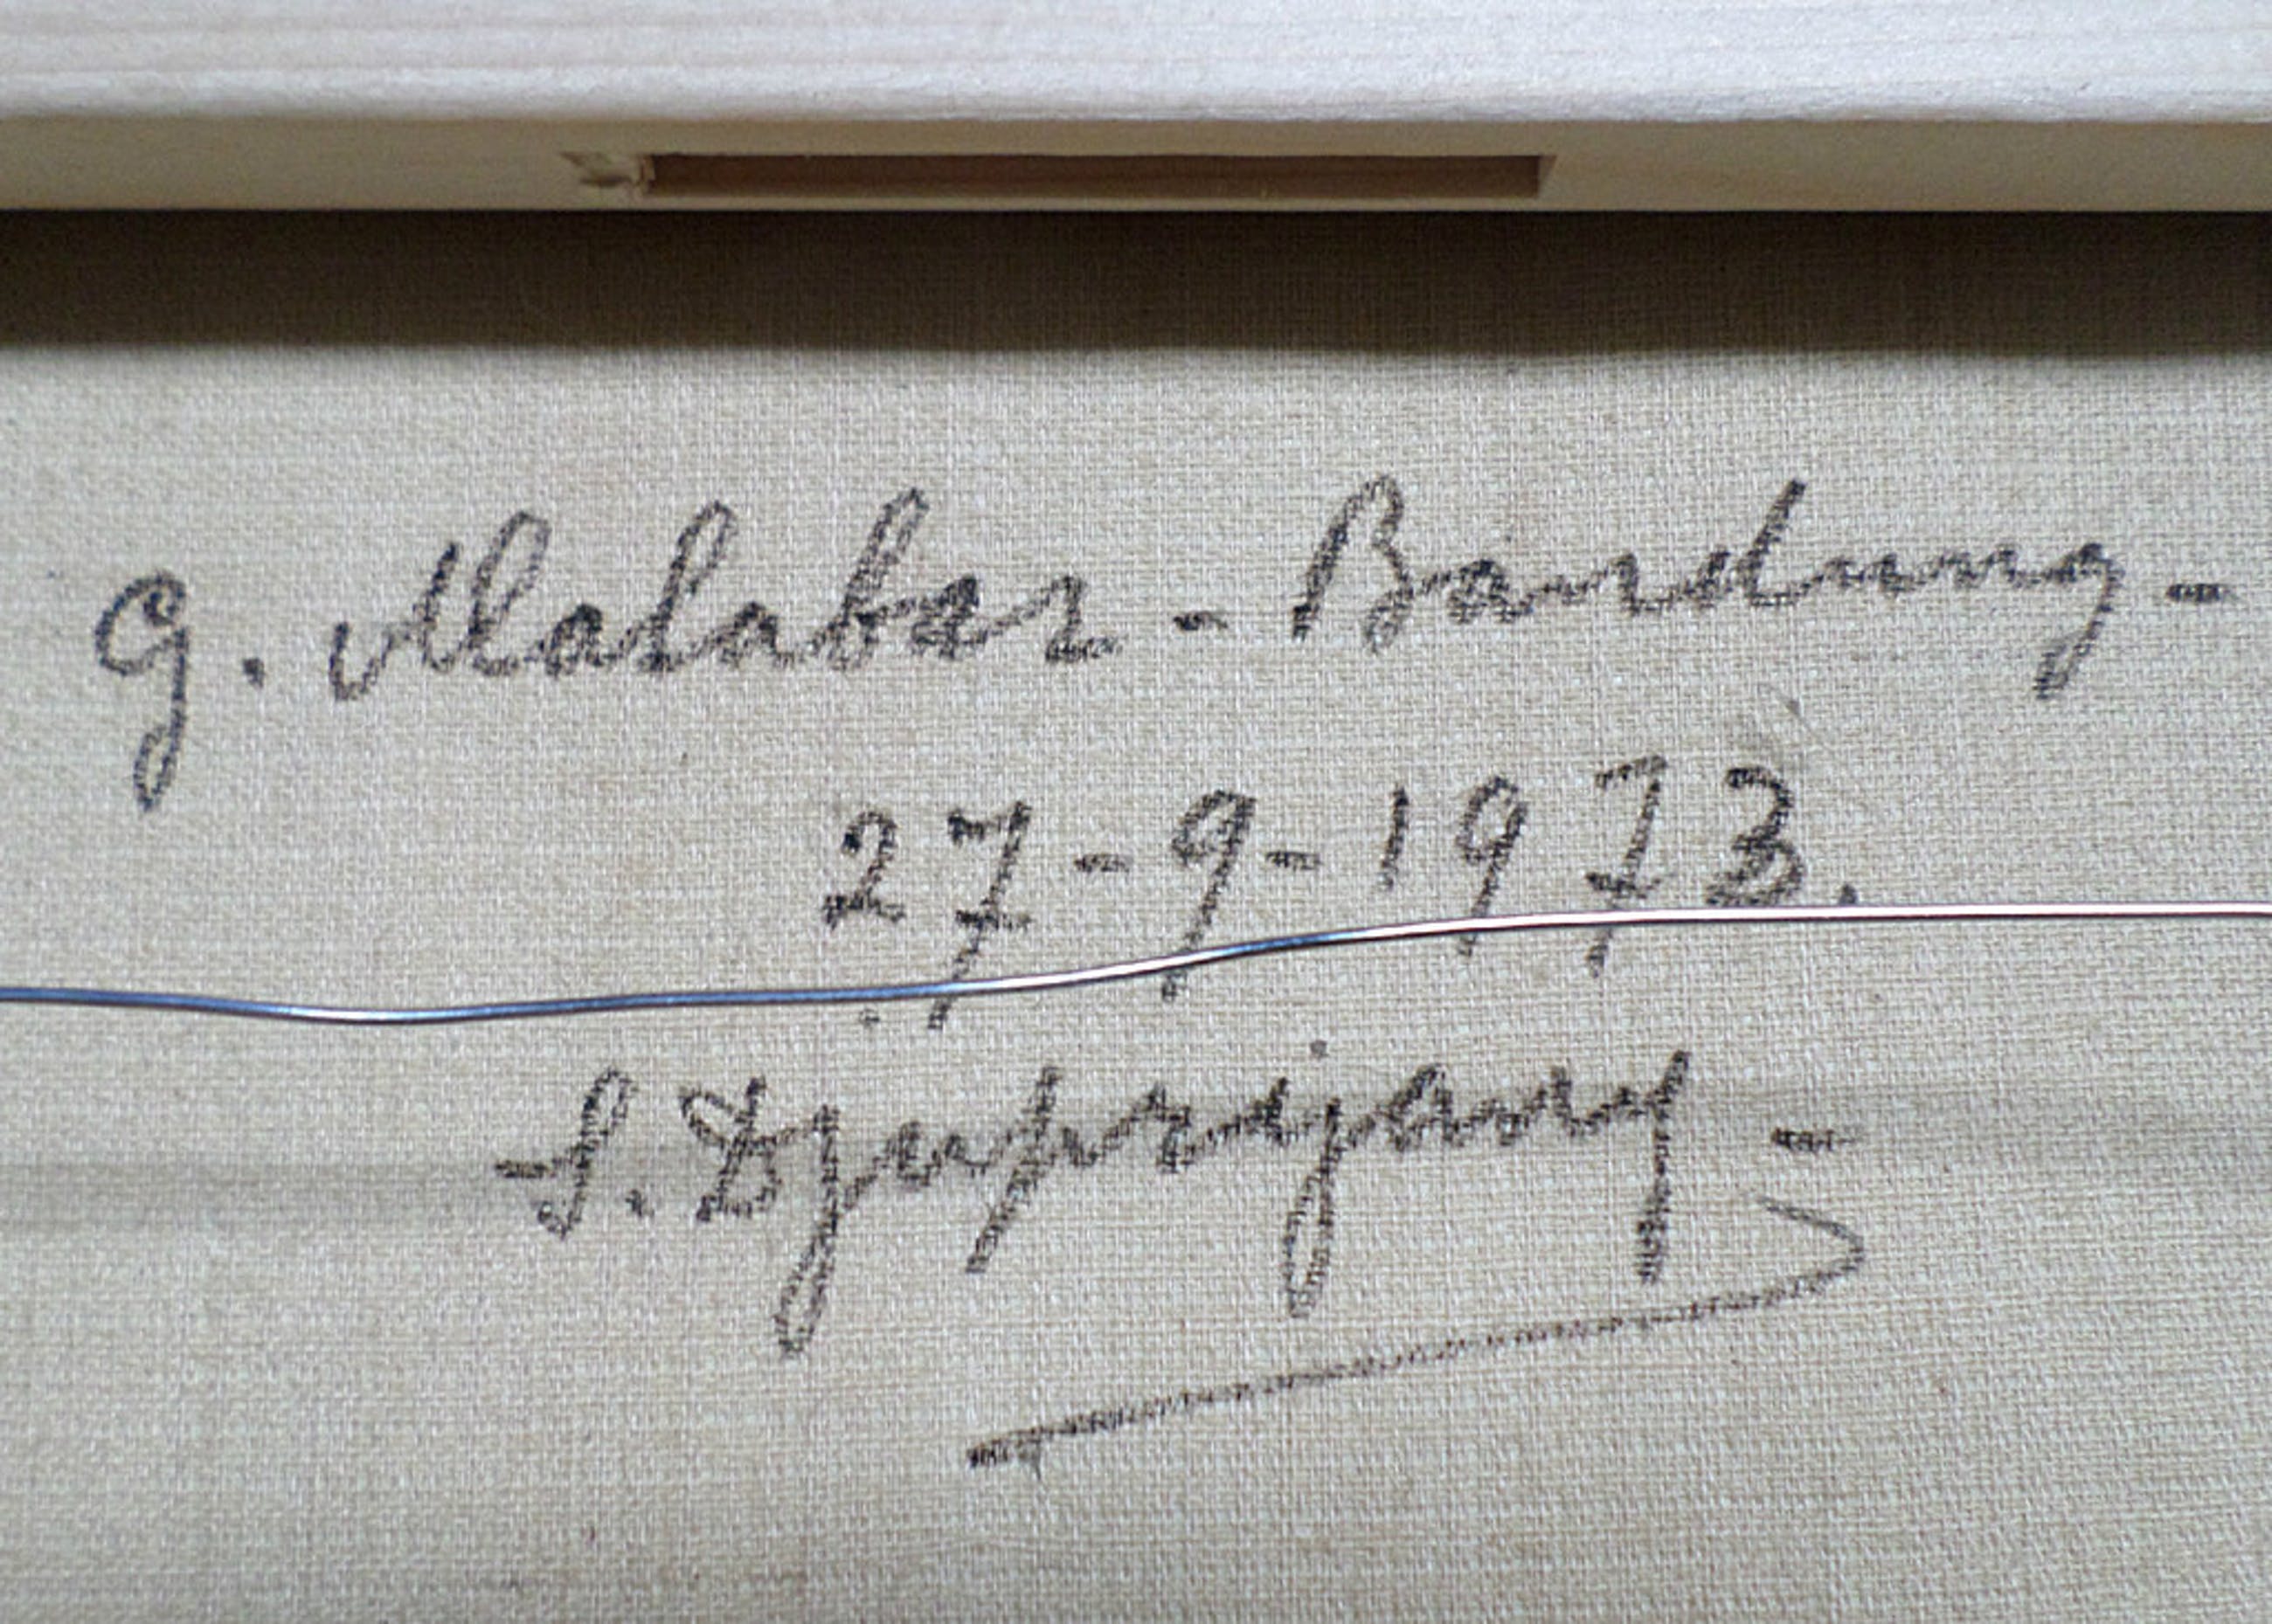 G. Malabar - Bandung -
27-9-1973.
S. Djuprijany =